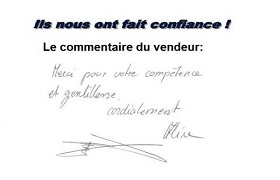 Ils nous ont fait confiance !
Le commentaire du vendeur:
Merci pour votre compétence
et gentillesse.
cordialement